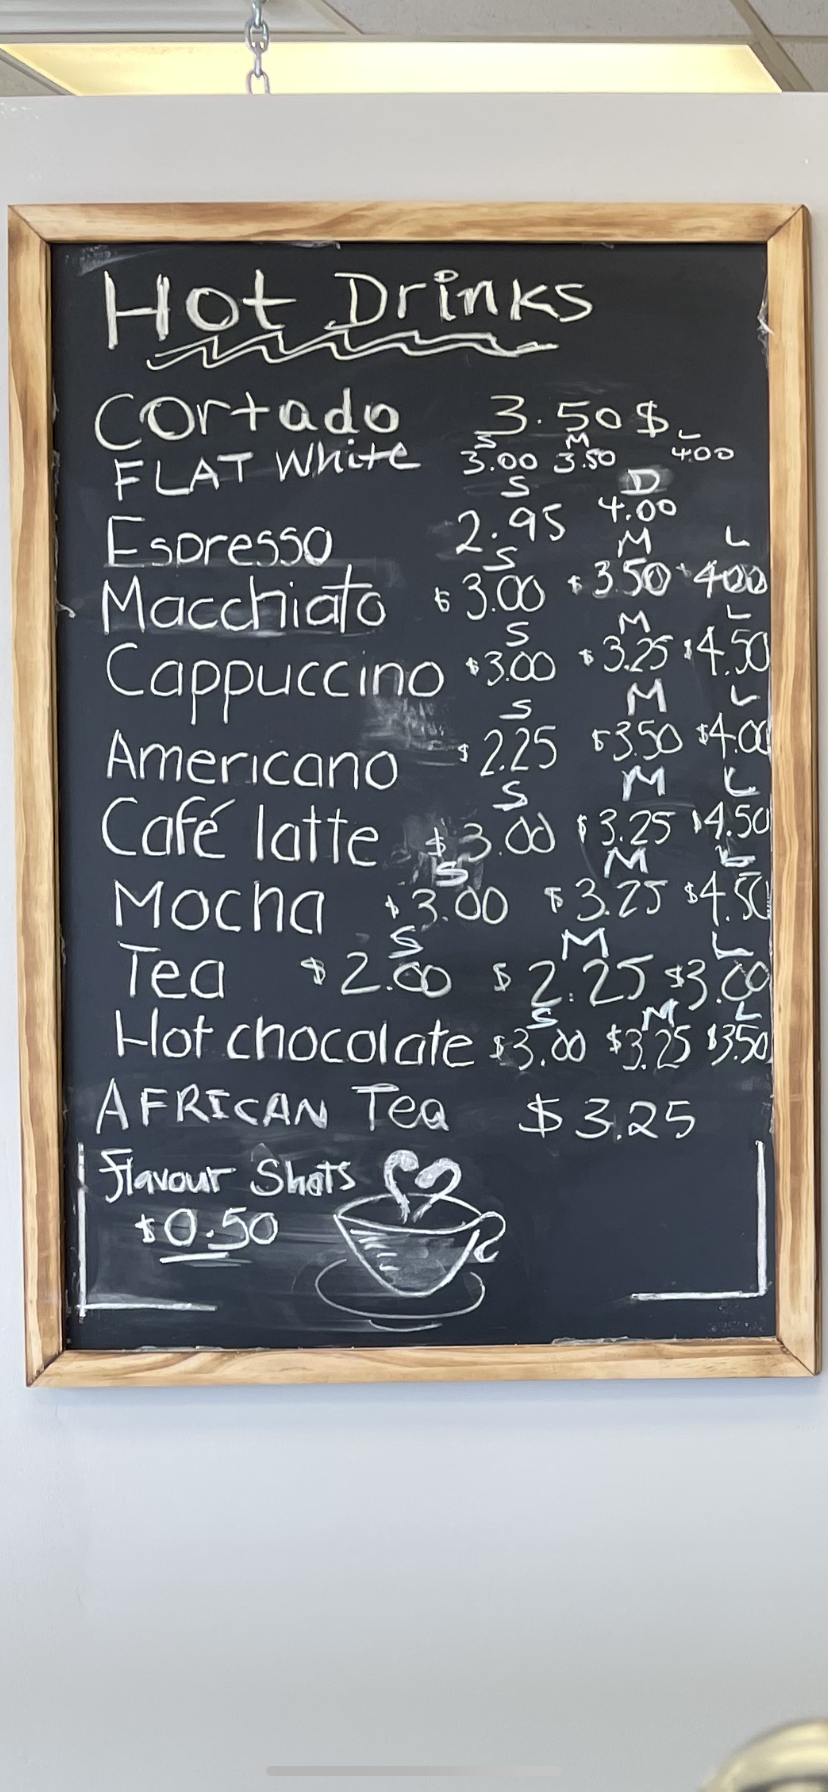 Hot Drinks
Cortado 3.50 $
S M L
FLAT White 3.00 3.50 4.00
S D
Espresso 2.95 4.00
S M L
Macchiato $3.00 $3.50 $4.00
S M L
Cappuccino $3.00 $3.25 $4.50
S M L
Americano $2.25 $3.50 $4.00
S M L
Café latte $3.00 $3.25 $4.50
S M L
Mocha $3.00 $3.25 $4.50
S M L
Tea $2.00 $2.25 $3.00
S M L
Hot chocolate $3.00 $3.25 $3.50
AFRICAN Tea $3.25
Flavour Shots
$0.50